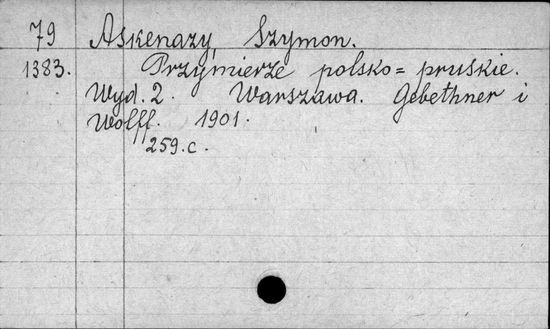 79 Askenazy, Szymon.
1383. Przymierze polsko=pruskie.
Wyd. 2. Warszawa. Gebethner i
Wolff. 1901.
259.c.